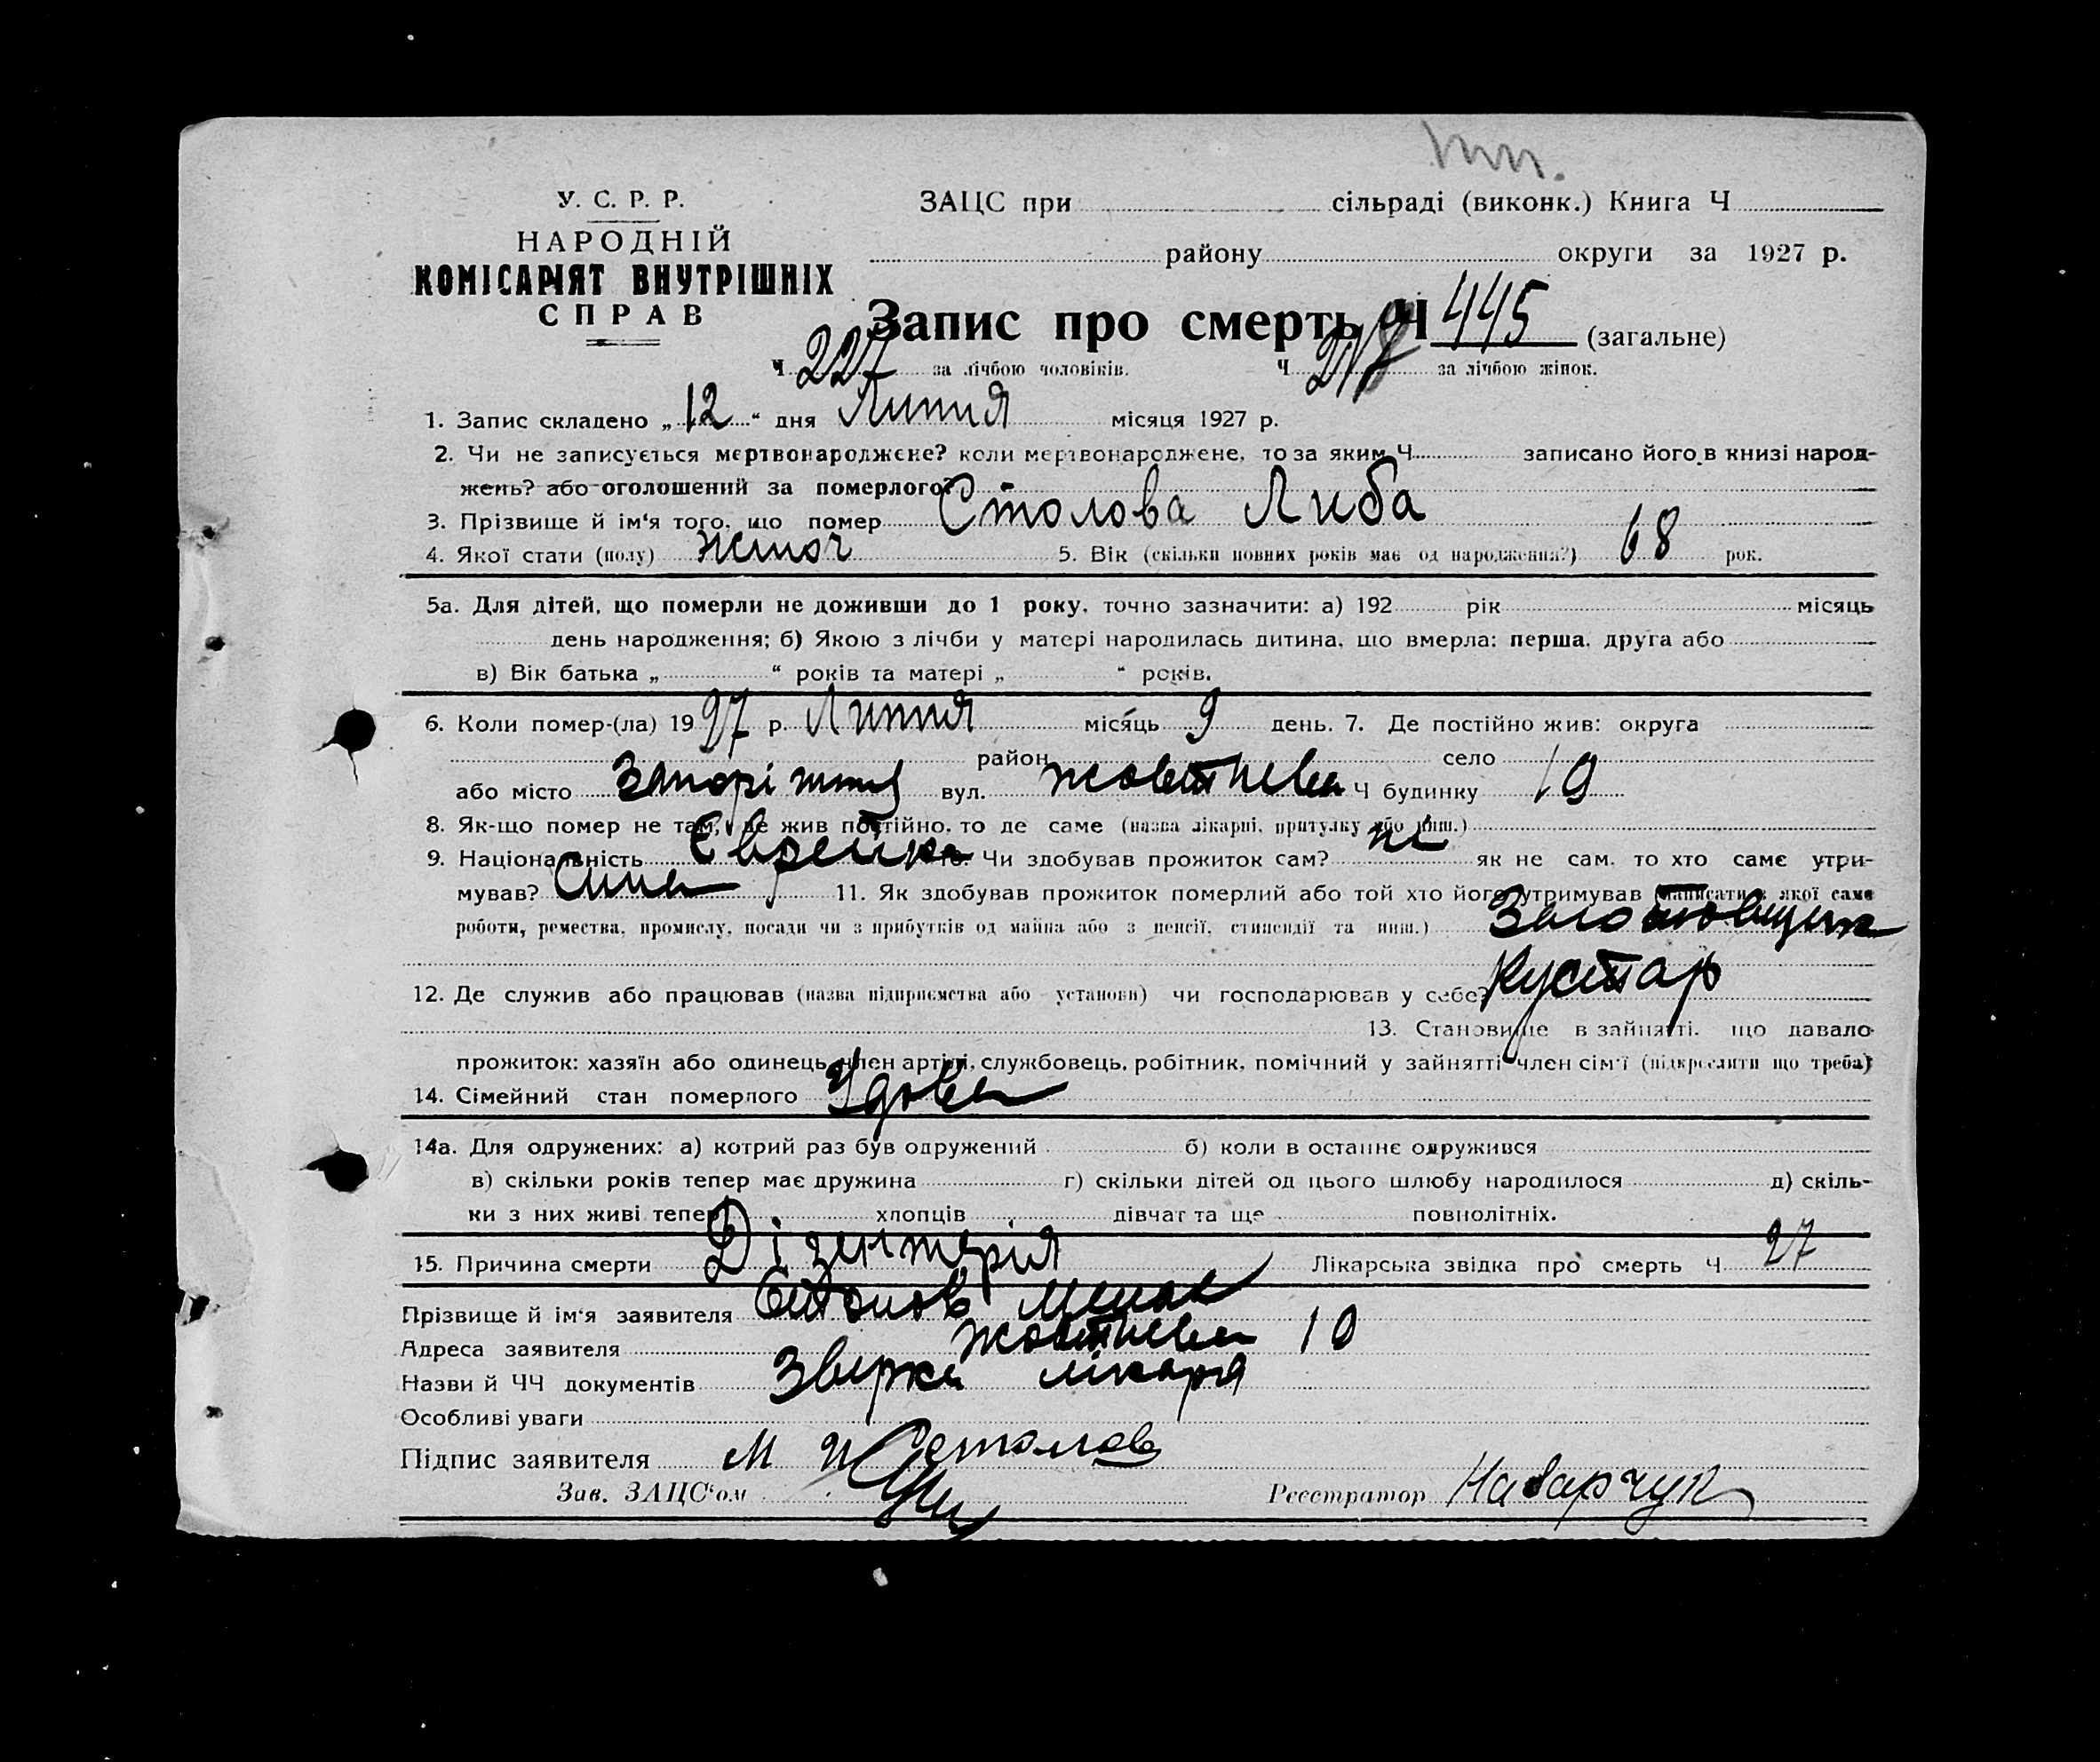 У. С. Р. Р.
НАРОДНІЙ
КОМІСАРІЯТ ВНУТРІШНІХ
СПРАВ
ЗАЦС при сільраді (виконк.) Книга Ч
району округи за 1927 р.
Запис про смерть Ч 445 (загальне)
Ч 227 за лічбою чоловіків. Ч за лічбою жінок.
1. Запис складено „12“ дня Липня місяця 1927 р.
2. Чи не записується мертвонароджене? коли мертвонароджене, то за яким Ч записано його в книзі народ-
жень? або оголошений за померлого?
3. Прізвище й ім‘я того, що помер Столова Либа
4. Якої стати (полу) жіноч 5. Вік (скільки повних років має од народження?) 68 рок.
5а. Для дітей, що померли не доживши до 1 року, точно зазначити: а) 192 рік місяць
день народження; б) Якою з лічби у матері народилась дитина, що вмерла: перша, друга або
в) Вік батька „ “ років та матері „ “ років.
6. Коли помер-(ла) 1927 р. Липня місяць 9 день. 7. Де постійно жив: округа
район село
або місто Запоріжжя вул. Жовтнева Ч будинку 10
8. Як-що помер не там, де жив постійно, то де саме (назва лікарні, притулку або инш.)
9. Національність Єврейка 10. Чи здобував прожиток сам? ні як не сам, то хто саме утри-
мував? Сини 11. Як здобував прожиток померлий або той хто його утримував (написати з якої саме
роботи, ремества, промислу, посади чи з прибутків од майна або з пенсії, стипендії та инш.) Заготовщик
Кустар
12. Де служив або працював (назва підприємства або установи) чи господарював у себе?
13. Становище в зайнятті, що давало
прожиток: хазяїн або одинець, член артілі, службовець, робітник, помічний у зайнятті член сім‘ї (підкреслити що треба)
14. Сімейний стан померлого Удова
14а. Для одружених: а) котрий раз був одружений б) коли в останнє одружився
в) скільки років тепер має дружина г) скільки дітей од цього шлюбу народилося д) скіль-
ки з них живі тепер хлопців дівчат та ще повнолітніх.
15. Причина смерти Дізентерія Лікарська звідка про смерть Ч 27
Прізвище й ім‘я заявителя Столов
Адреса заявителя Жовтнева 10
Назви й ЧЧ документів лікаря
Особливі уваги
Підпис заявителя М Столов
Зав. ЗАЦС‘ом Реєстратор Назарчук